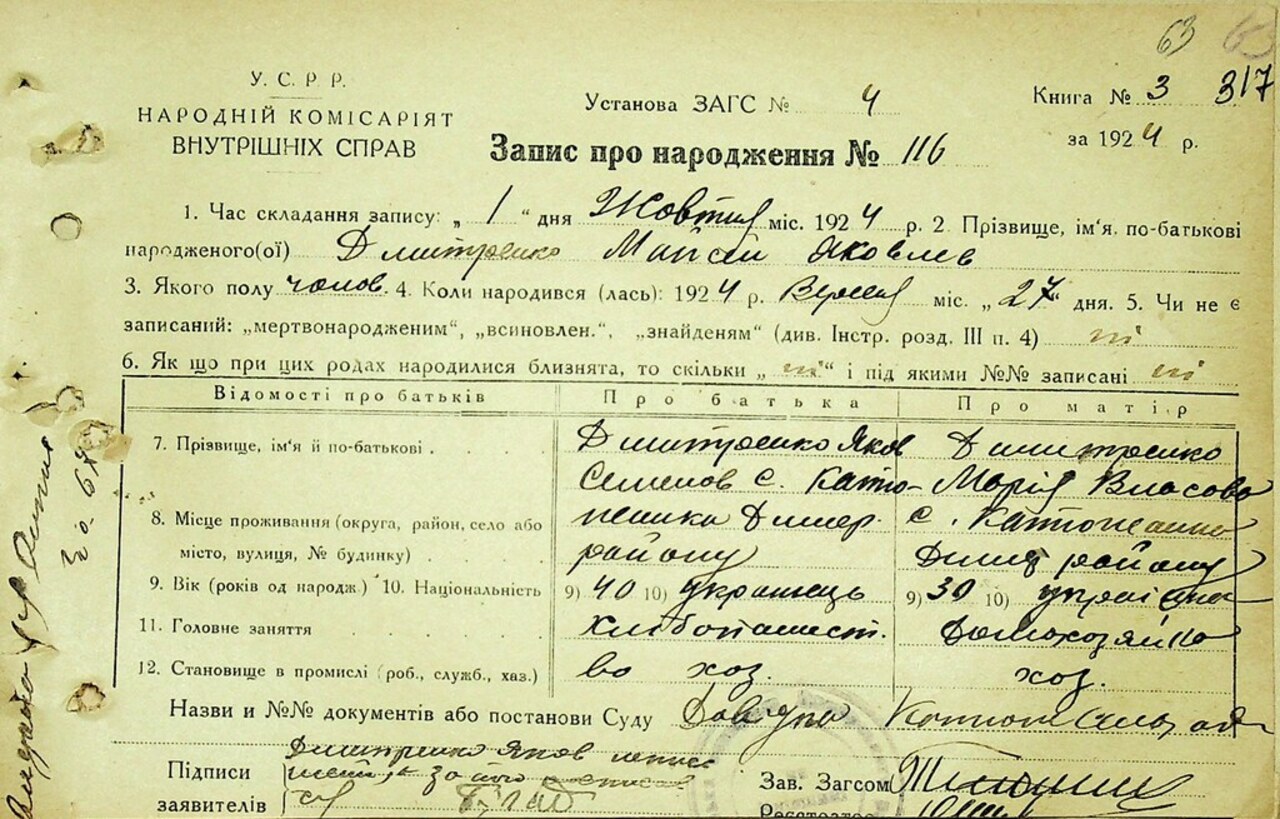 63 63
У. С. Р. Р.
НАРОДНІЙ КОМІСАРІЯТ
ВНУТРІШНІХ СПРАВ
Установа ЗАГС № 4
Книга № 3 317
за 1924 р.
Запис про народження № 116
1. Час складання запису: „ 1 “ дня Жовтня міс. 1924 р. 2. Прізвище, ім'я, по-батькові
народженого(ої) Дмитренко Яковлев
3. Якого полу чолов. 4. Коли народився (лась): 1924 р. Вересня міс. „ 27 “ дня. 5. Чи не є
записаний: „мертвонародженим“, „всиновлен.“, „знайденям“ (див. Інстр. розд. III п. 4) ні
6. Як що при цих родах народилися близнята, то скільки „ ні “ і під якими №№ записані ні
Відомості про батьків Про батька Про матір
7. Прізвище, ім'я й по-батькові Дмитренко Яков Дмитренко
Семенов с. Катю- Марія Власова
8. Місце проживання (округа, район, село або жанка Димер. с. Катюжанка
місто, вулиця, № будинку) району Димер району
9. Вік (років од народж.) 10. Національність 9) 40 10) українець 9) 30 10) українка
11. Головне заняття хлібопашест. Домохозяйка
12. Становище в промислі (роб., служб., хаз.) во хоз. хоз.
Назви и №№ документів або постанови Суду Довідка
Підписи Дмитренко Яков
заявителів
Зав. Загсом
Реєстратор